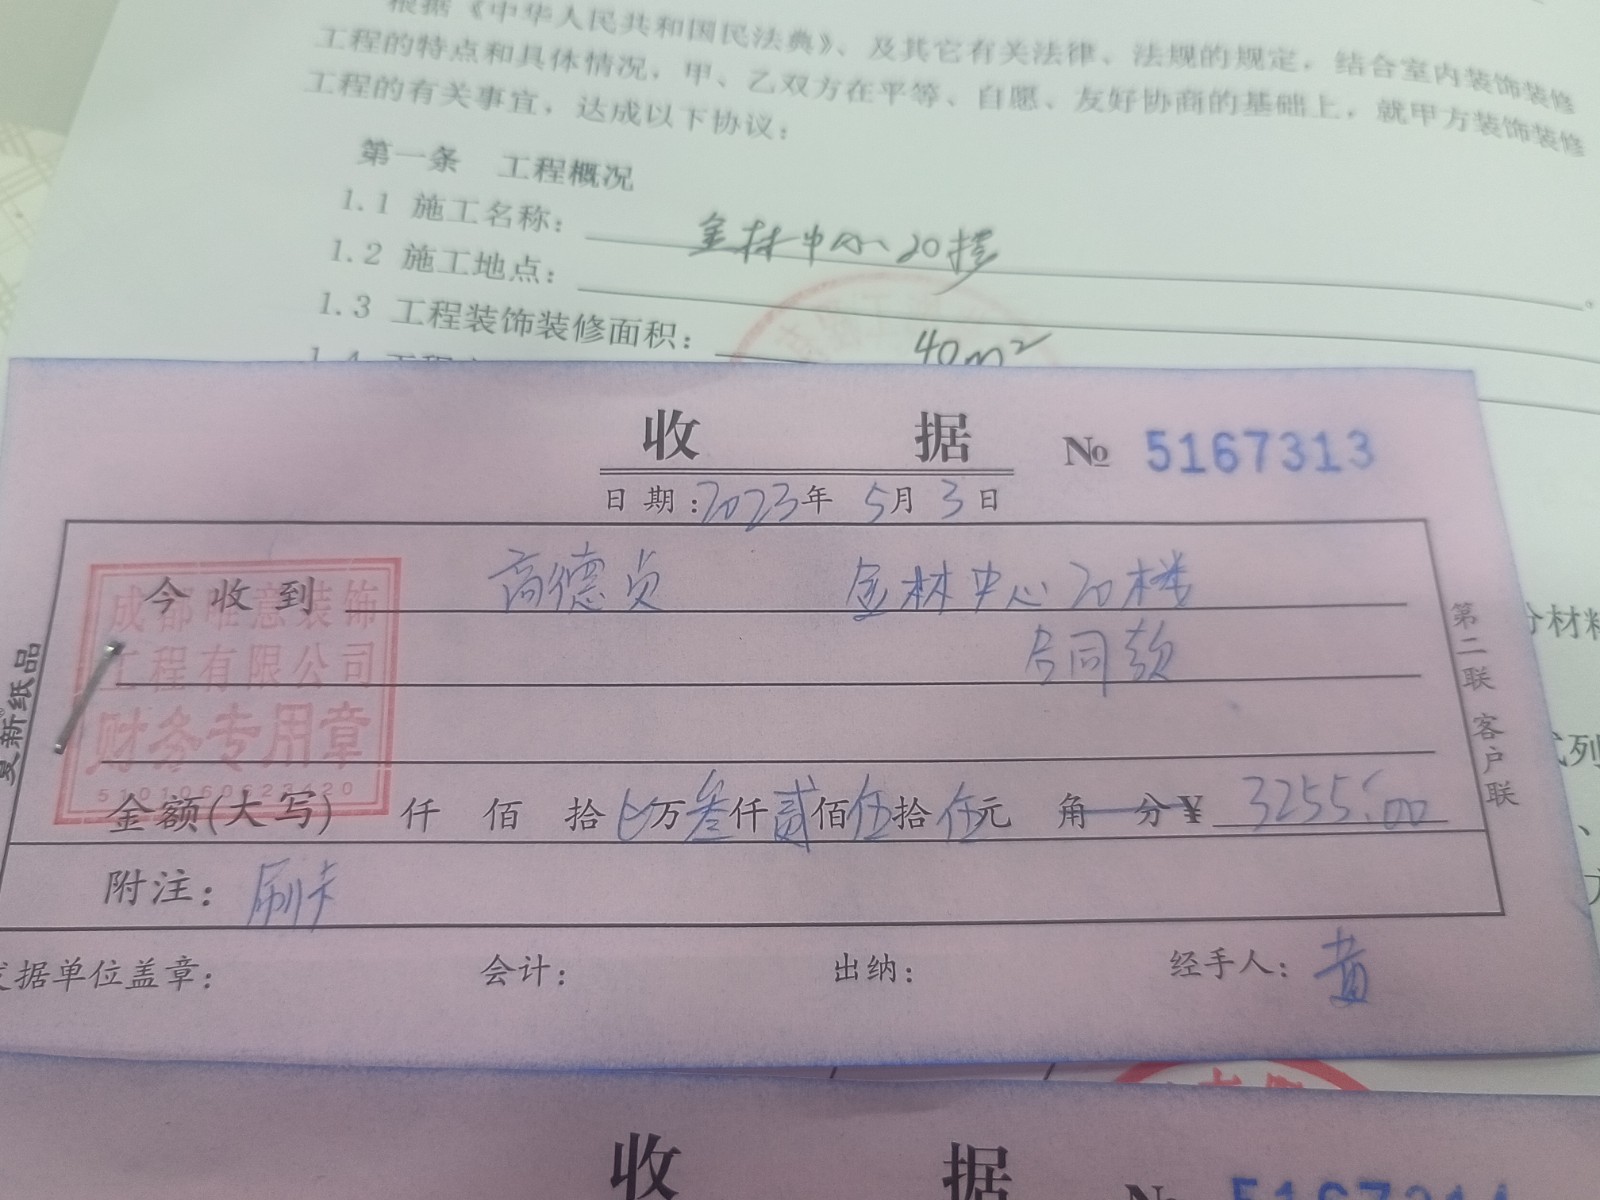 根据《中华人民共和国民法典》、及其它有关法律、法规的规定，结合室内装饰装修
工程的特点和具体情况，甲、乙双方在平等、自愿、友好协商的基础上，就甲方装饰装修
工程的有关事宜，达成以下协议：
第一条 工程概况
1.1 施工名称： 金林中心20楼 。
1.2 施工地点：
1.3 工程装饰装修面积： 40m²
1.4 工程
收 据 № 5167313
日期：2023年 5月 3日
今收到 高德贞 金林中心20楼
合同款
成都唯意装饰
工程有限公司
财务专用章
金额(大写) 仟 佰 拾 万叁仟贰佰伍拾伍元 角 分 ¥ 3255.00
附注： 刷卡
据单位盖章： 会计： 出纳： 经手人： 黄
第二联 客户联
新纸品
分材料
式列
收 据 № 5167314